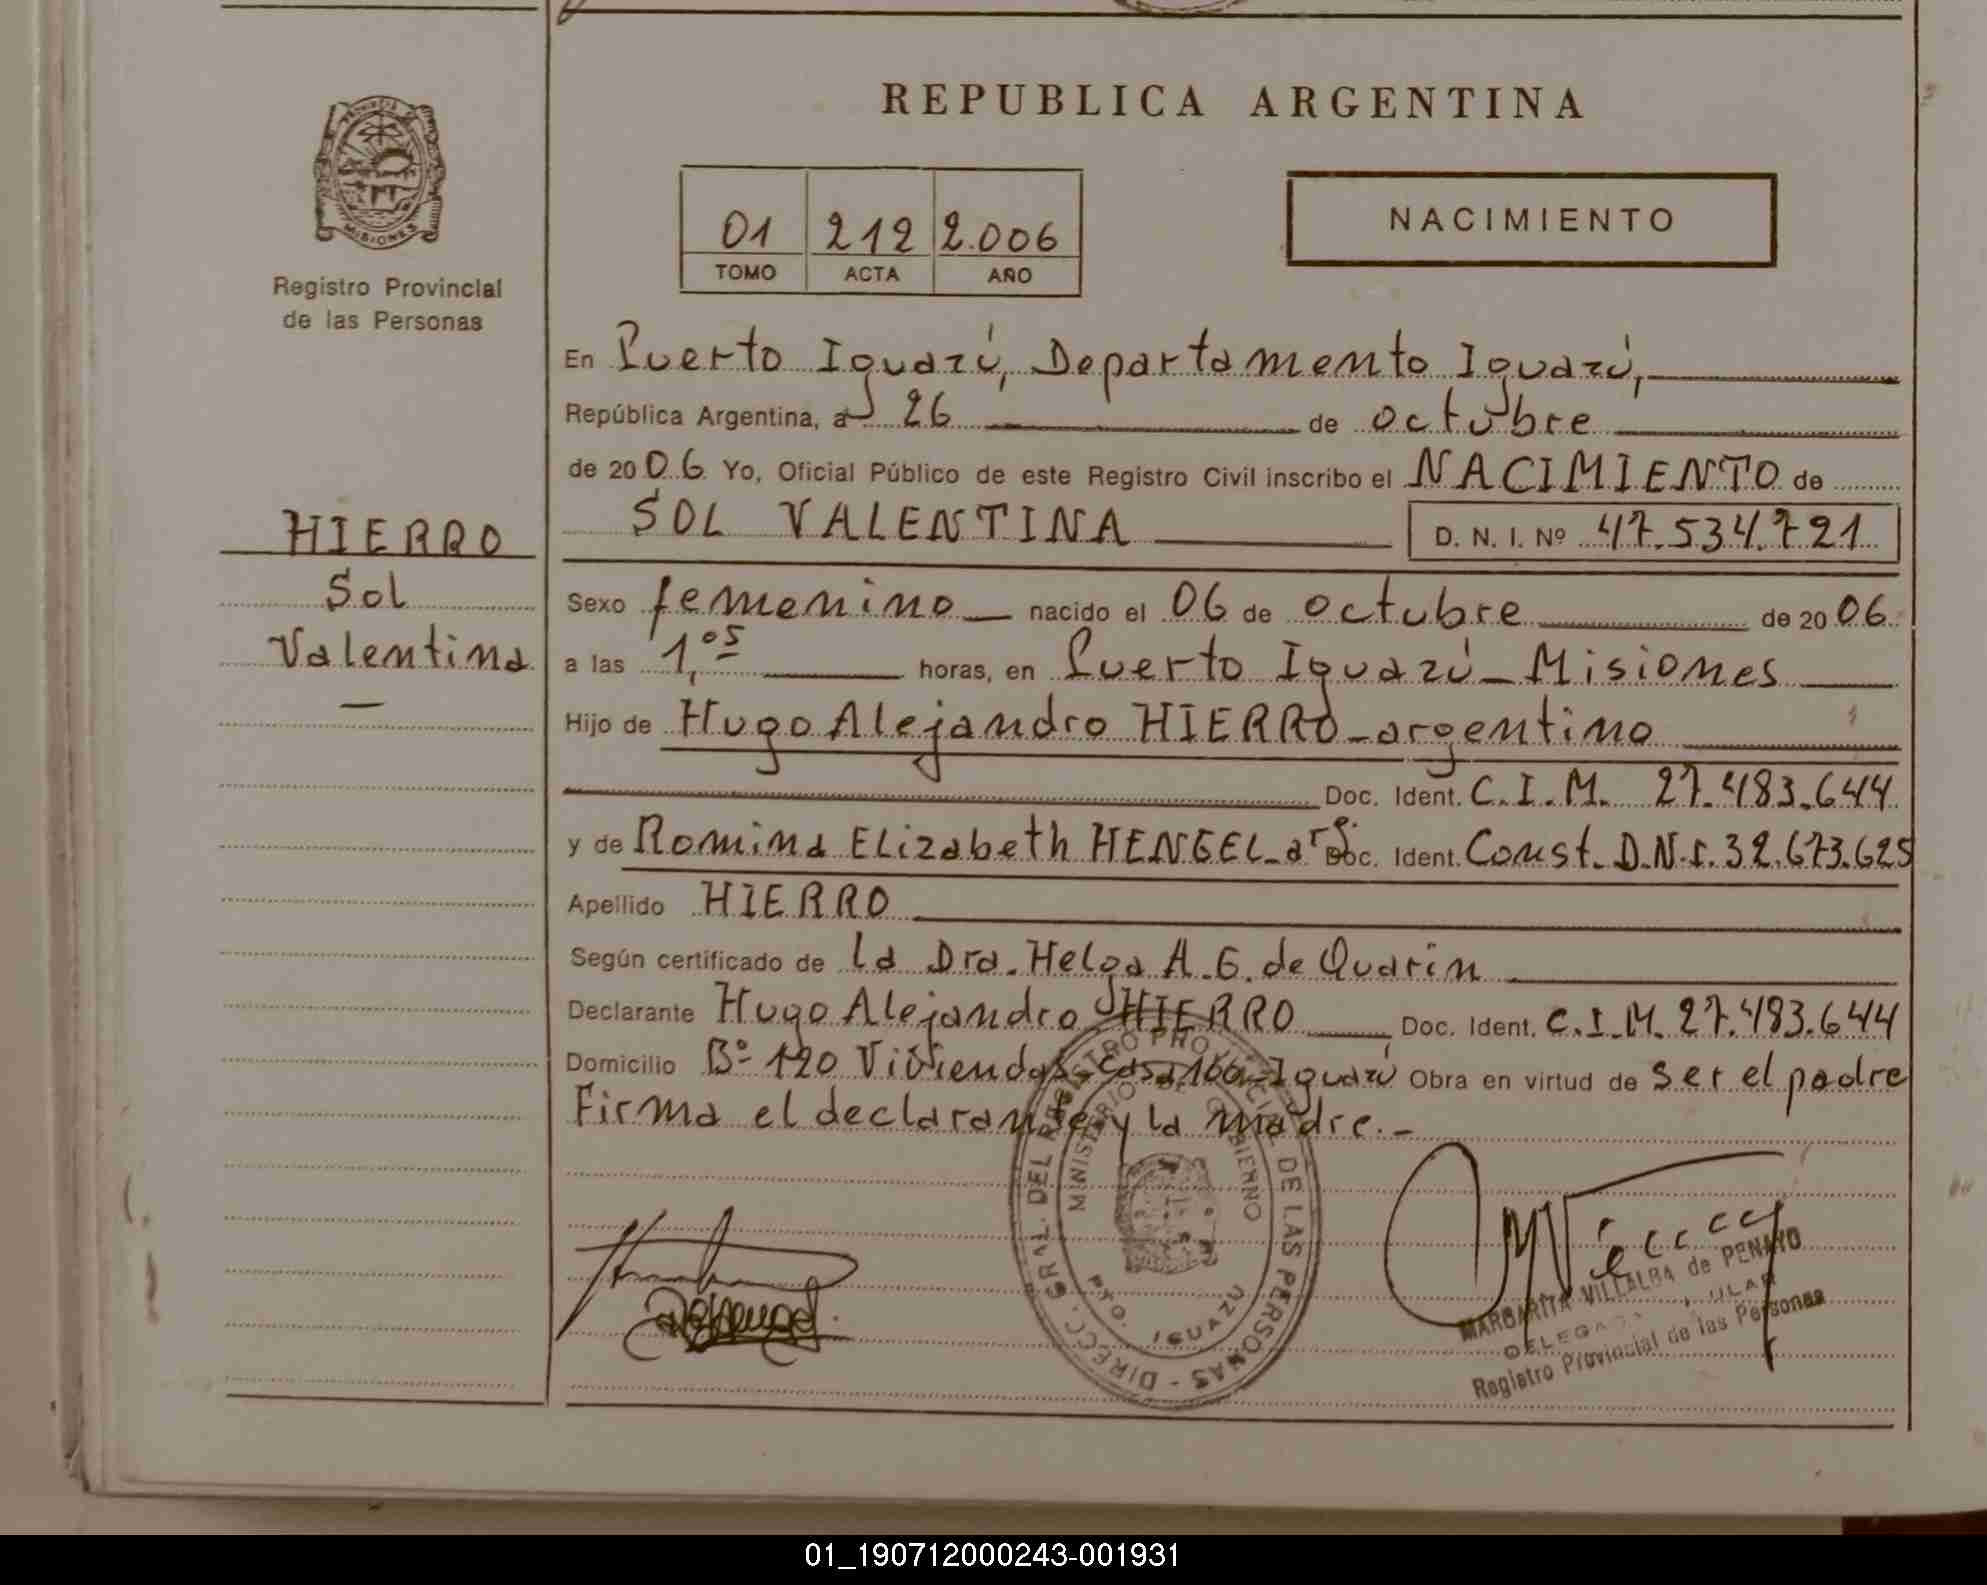 REPUBLICA ARGENTINA
PROVINCIA DE MISIONES
Registro Provincial
de las Personas
01 212 2.006
TOMO ACTA AÑO
NACIMIENTO
En Puerto Iguazú, Departamento Iguazú,
República Argentina, a 26 de octubre
de 2006 Yo, Oficial Público de este Registro Civil inscribo el NACIMIENTO de
SOL VALENTINA D. N. I. Nº 47.534.721
HIERRO
Sol
Valentina
Sexo femenino nacido el 06 de octubre de 2006
a las 1,05 horas, en Puerto Iguazú - Misiones
Hijo de Hugo Alejandro HIERRO - argentino
Doc. Ident. C.I.M. 27.483.644
y de Romina Elizabeth HENGEL - arg. Doc. Ident. Const. D.N.I. 32.673.625
Apellido HIERRO
Según certificado de la Dra. Helga A. G. de Quarin
Declarante Hugo Alejandro HIERRO Doc. Ident. C.I.M. 27.483.644
Domicilio Bº 120 Viviendas - Casa 160 - Iguazú Obra en virtud de ser el padre
Firma el declarante y la madre.-
DIRECC. GRAL. DEL REGISTRO PROVINCIAL DE LAS PERSONAS -
MINISTERIO DE GOBIERNO
PTO. IGUAZU
MARGARITA VILLALBA de PENAYO
Registro Provincial de las Personas
01_190712000243-001931